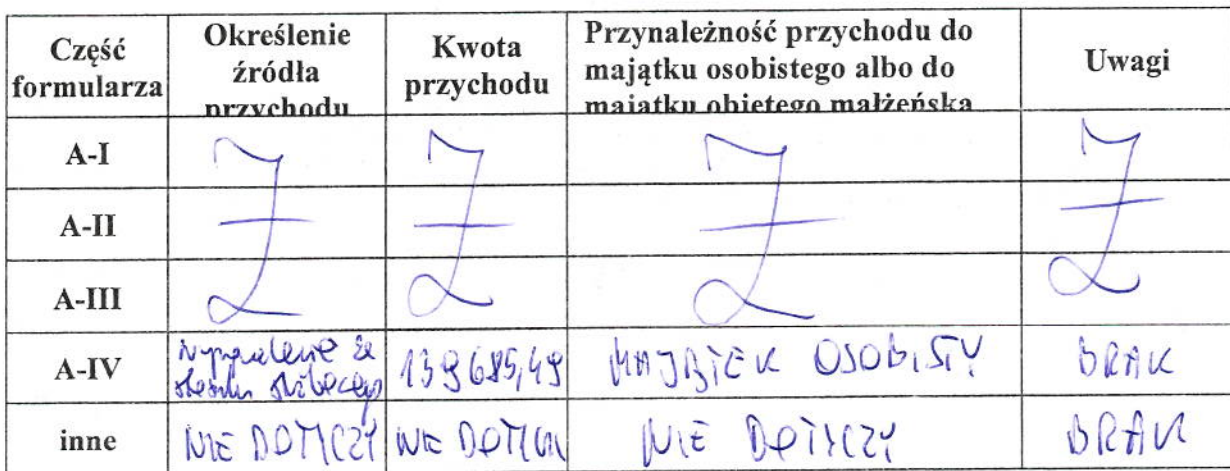 Część formularza
Określenie źródła przychodu
Kwota przychodu
Przynależność przychodu do majątku osobistego albo do majątku objętego małżeńską
Uwagi
A-I
A-II
A-III
A-IV
wynagrodzenie ze stosunku służbowego
139685,49
MAJĄTEK OSOBISTY
BRAK
inne
NIE DOTYCZY
NIE DOTYCZY
NIE DOTYCZY
BRAK